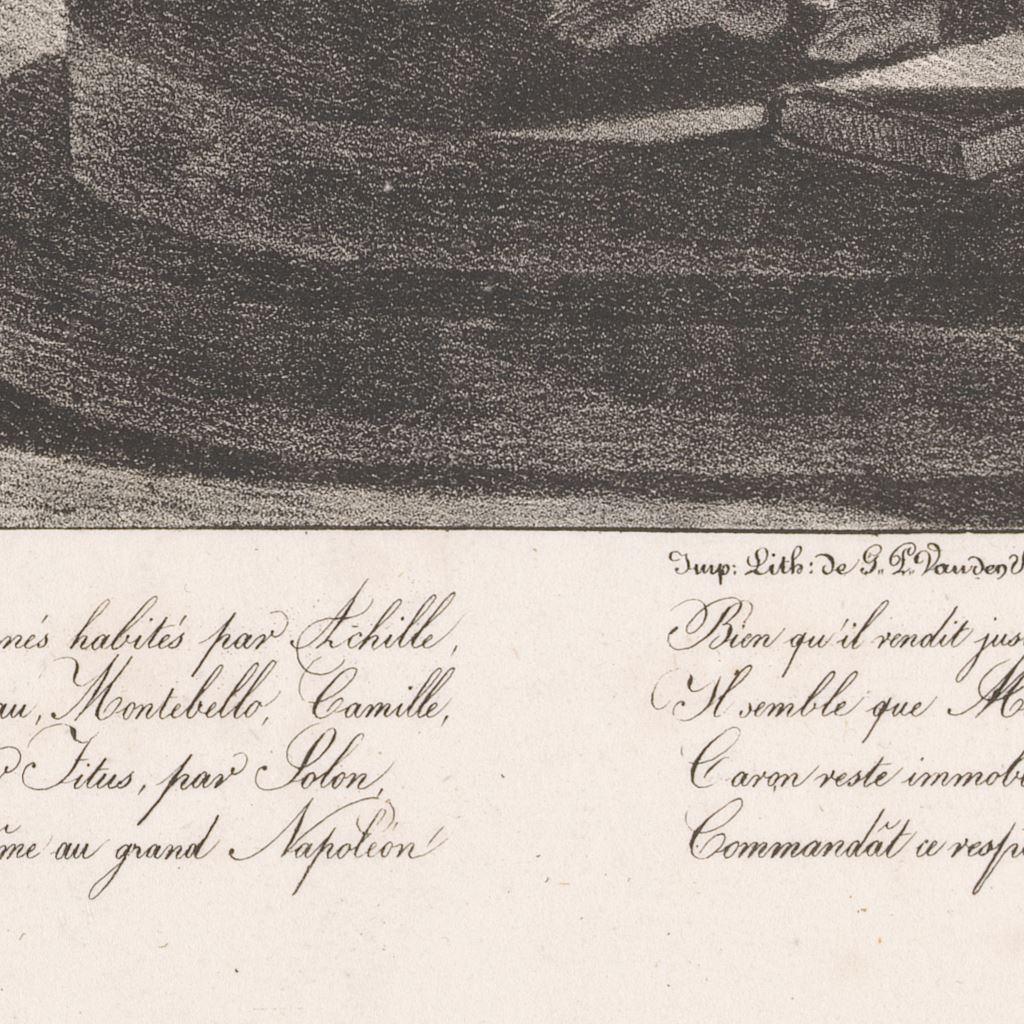 Imp: Lith: de G. P. Vanden
nés habités par Achille,
au, Montebello, Camille,
Titus, par Solon,
me au grand Napoléon
Bien qu'il rendit jus
Il semble que M
Caron reste immob
Commandât ce resp